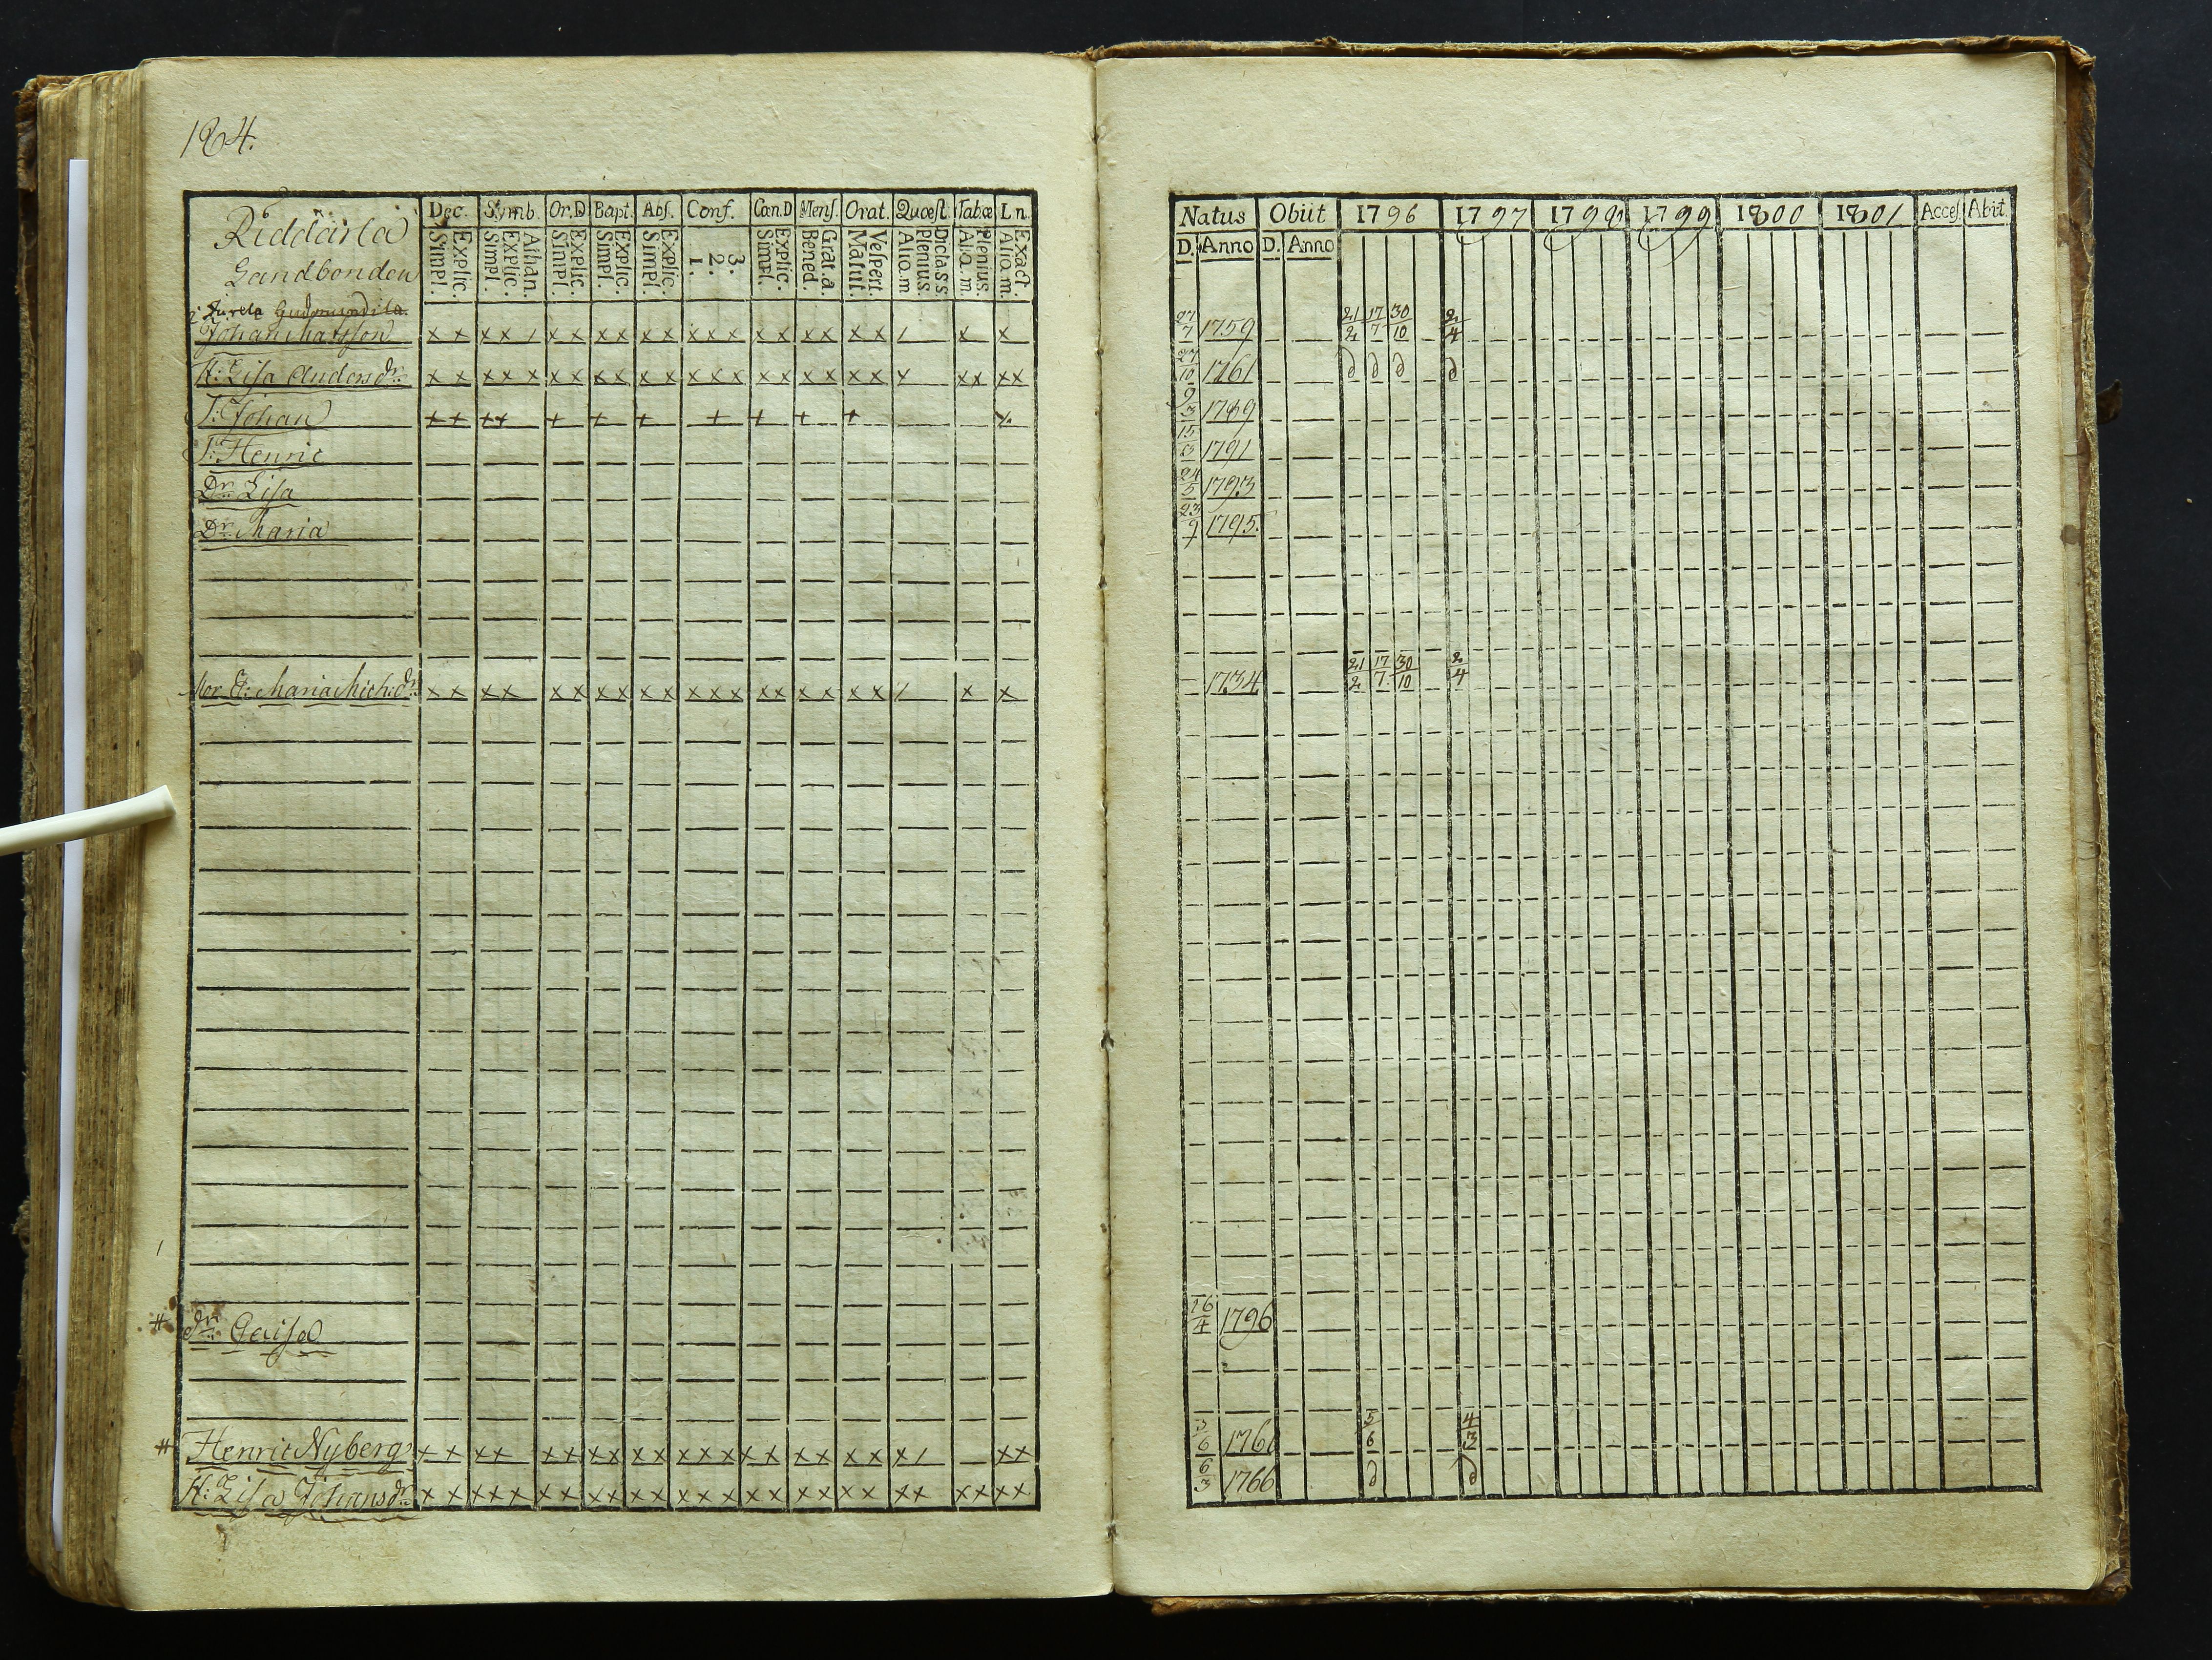 184.
Riddarla
Landbonden
Dec. Symb. Or.D Bapt. Abs. Conf. Cœn.D Mens. Orat. Quœst. Tabœ Ln.
Simpl. Explic. Simpl. Explic. Athan. Simpl. Explic. Simpl. Explic. Simpl. Explic. 1. 2. 3. Simpl. Explic. Bened. Grat.a. Matut. Vespert. Alio.m Plenius. Dicta SS. Alio.m. Plenius. Alio.m. Exact.
Johan Matsson x x x x / x x x x x x x x x x x x x x x / x x
H: Lisa Andersdr. x x x x x x x x x x x x x x x x x x x x x x x x x x
S: Johan + + + + + + + + + + + x
S: Henric
Dr. Lisa
Dr. Maria
Maria Mich:dr. x x x x x x x x x x x x x x x x x x x / x x
#
dr. Caisa
# Henric Nyberg x x x x x x x x x x x x x x x x x x x x / x x
H: Lisa Johansdr. x x x x x x x x x x x x x x x x x x x x x x x x x x
Natus Obiit 1796 1797 1798 1799 1800 1801 Acces. Abit.
D. Anno D. Anno
27/7 1759 21/2 17/7 30/10 2/4
27/10 1761 d d d d
9/3 1789
15/8 1791
24/5 1793
23/9 1795.
1734 21/2 17/7 30/10 2/4
26/4 1796
3/6 1761 5/6 4/3
6/3 1766 d d